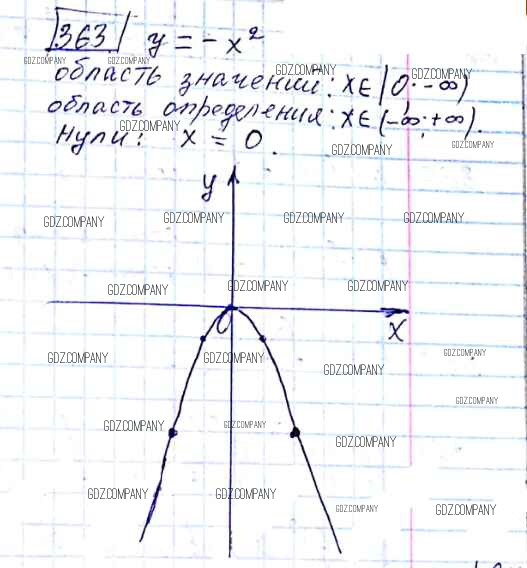 363 y = -x²
GDZ.COMPANY GDZ.COMPANY
область значений: x∈(0; -∞)
GDZ.COMPANY GDZ.COMPANY
область определения: x∈(-∞; +∞).
GDZ.COMPANY
нули: x = 0.
GDZ.COMPANY GDZ.COMPANY
y
GDZ.COMPANY GDZ.COMPANY GDZ.COMPANY GDZ.COMPANY
GDZ.COMPANY GDZ.COMPANY GDZ.COMPANY
0
x
GDZ.COMPANY GDZ.COMPANY GDZ.COMPANY
GDZ.COMPANY
GDZ.COMPANY
GDZ.COMPANY GDZ.COMPANY GDZ.COMPANY
GDZ.COMPANY GDZ.COMPANY GDZ.COMPANY GDZ.COMPANY